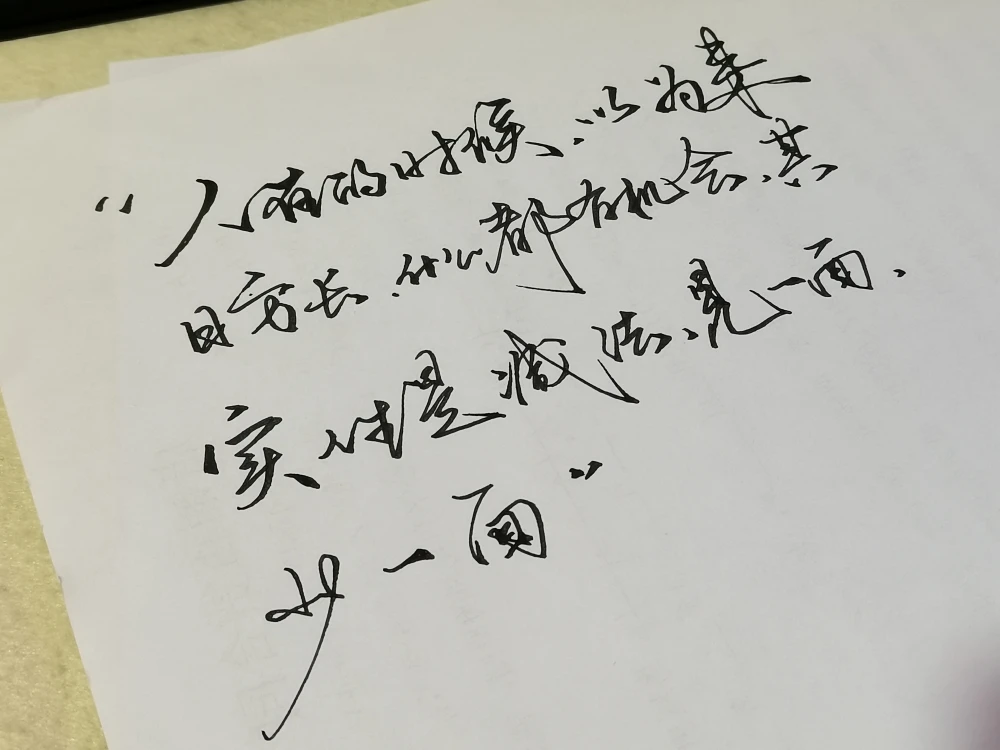 “人有的时候、以为来
日方长.什么都有机会.其
实人生是减法.见一面.
少一面”